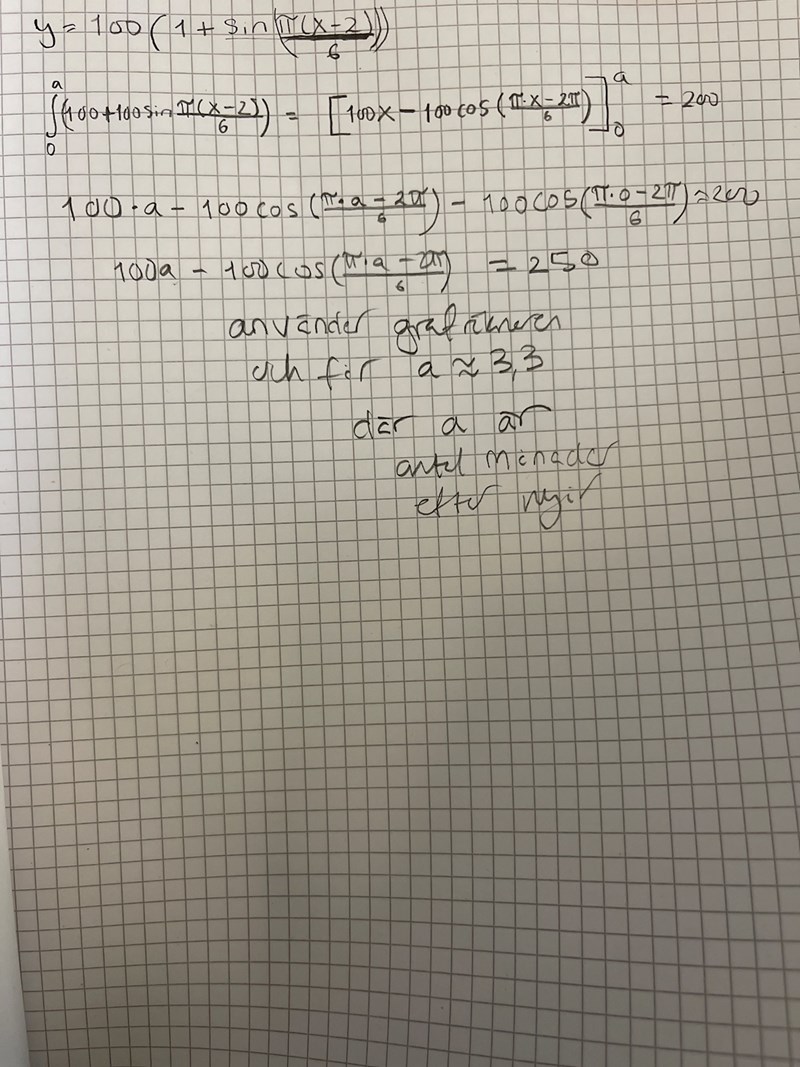 y = 100(1 + sin(π(x-2)/6))
∫₀ᵃ(100+100sin π(x-2)/6) = [100x - 100cos(π·x-2π/6)]₀ᵃ = 200
100·a - 100cos(π·a-2π/6) - 100cos(π·0-2π/6) = 200
100a - 100cos(π·a-2π/6) = 250
använder grafräknaren
och får a ≈ 3,3
där a är
antal månader
efter nyår